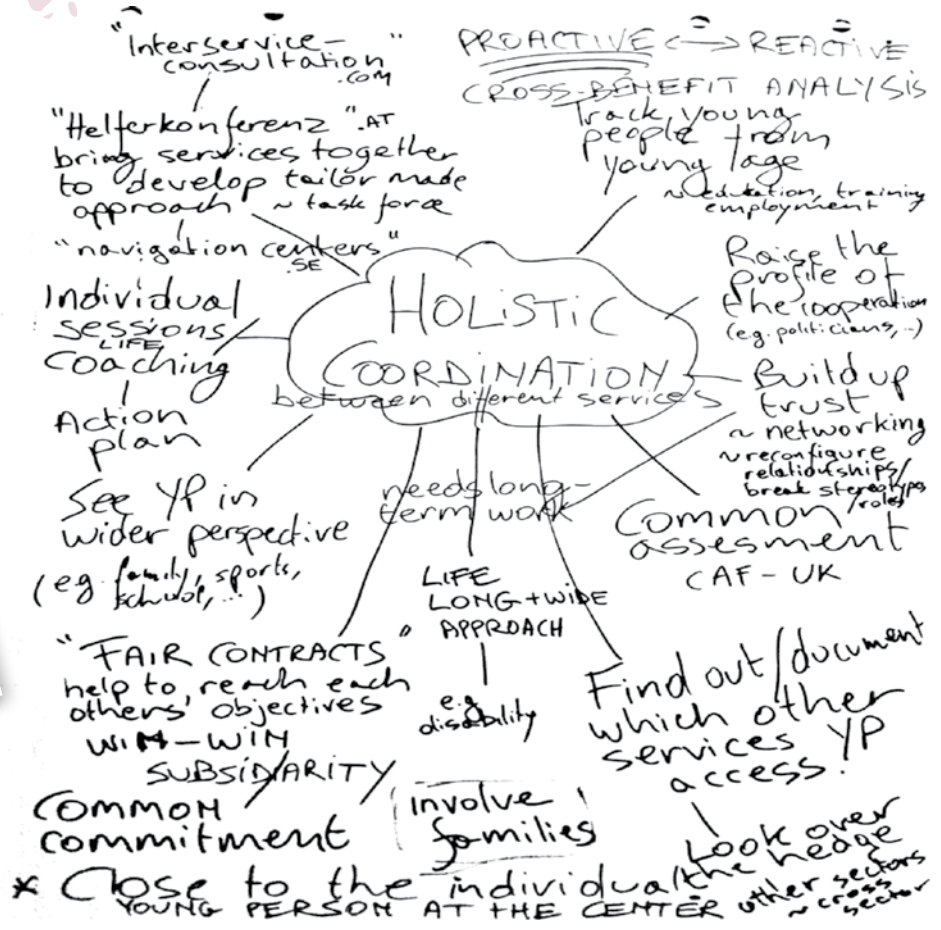 "Interservice-
consultation"
.com
"Helferkonferenz".AT
bring services together
to develop tailor made
approach ~ task force
"navigation centers"
.SE
Individual
sessions/
LIFE
Coaching
Action
plan
See YP in
wider perspective
(e.g. family, sports,
school, ...)
"FAIR CONTRACTS"
help to reach each
others' objectives
WIN-WIN
SUBSIDIARITY
COMMON
commitment
PROACTIVE <-> REACTIVE
CROSS-BENEFIT ANALYSIS
Track young
people from
young age
~ education, training
employment
Raise the
profile of
the cooperation
(e.g. politicians, ..)
Build up
trust
~ networking
~ reconfigure
relationships/
break stereotypes
/roles
HOLISTIC
COORDINATION
between different services
needs long-
term work
Common
assesment
CAF-UK
LIFE
LONG+WIDE
APPROACH
e.g.
disability
Find out/document
which other
services YP
access!
Look over
the hedge
other sectors
~ cross
sector
involve
families
* Close to the individual/
YOUNG PERSON AT THE CENTER